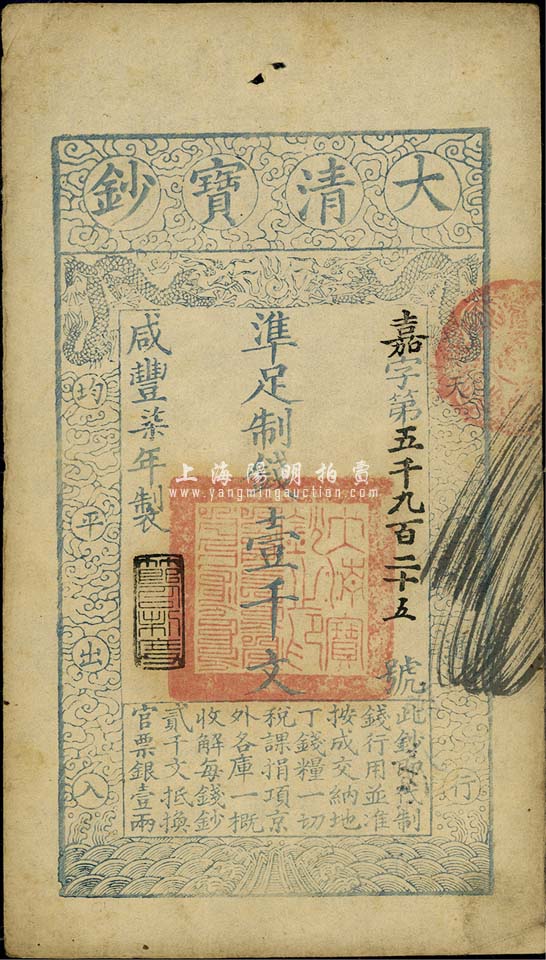 大清寶鈔
嘉字第五千九百二十五號
準足制錢壹千文
咸豐柒年製
天
行
均平出入
此鈔即代制
錢行用並准
按成交納地
丁錢糧一切
稅課捐項京
外各庫一概
收解每錢鈔
貳千文抵換
官票銀壹兩
上海陽明拍賣
www.yangmingauction.com